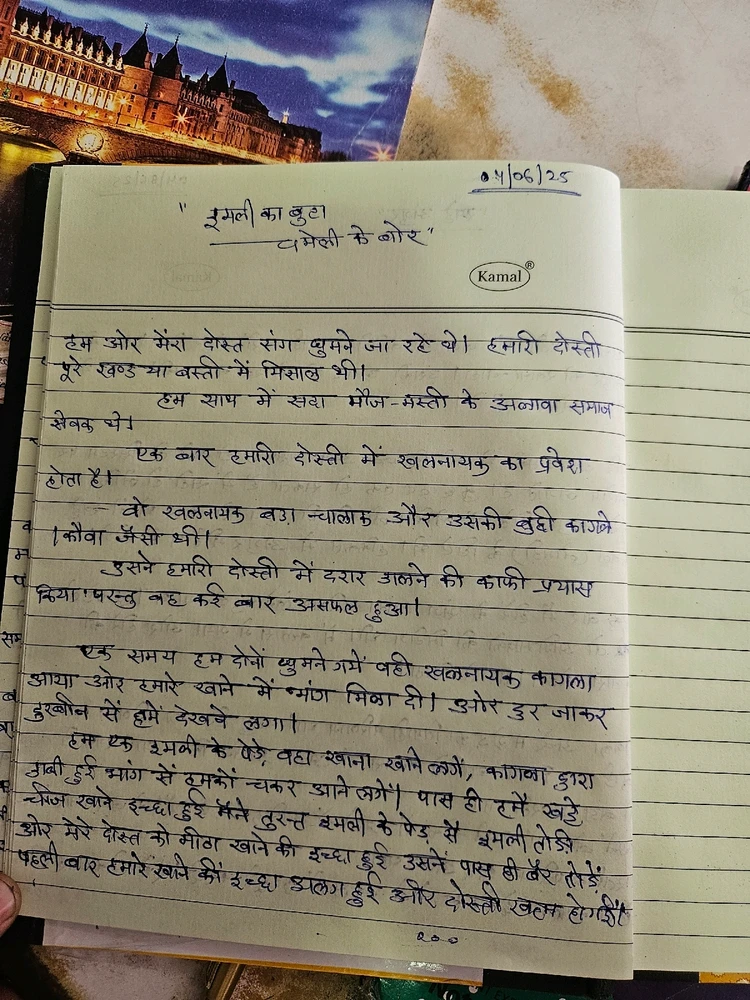 04/06/25
" इमली का बुटा
चमेली के बोर "
Kamal®
हम ओर मेंरा दोस्त संग घुमने जा रहे थे। हमारी दोस्ती
पूरे खण्ड या बस्ती में मिसाल थी।
हम साथ में सदा मौज-मस्ती के अलावा समाज
सेवक थे।
एक बार हमारी दोस्ती में खलनायक का प्रवेश
होता है।
वो खलनायक बड़ा चालाक और उसकी बुद्दी कागले
।कौवा जैसी थी।
उसने हमारी दोस्ती में दरार डालने की काफी प्रयास
किया परन्तु वह कई बार असफल हुआ।
एक समय हम दोनों घुमने गमें वही खलनायक कागला
आया ओर हमारे खाने में भांग मिला दी। ओर दुर जाकर
दुरबीन सें हमें देखने लगा।
हम एक इमली के पेड़े, वहा खाना खाने लगें, कागला द्वारा
डाली हुई भांग सें हमकों चकर आने लगें। पास ही हमै खट्टे
चीज खाने इच्छा हुई मैंने तुरन्त इमली के पेड सै इमली तोडी
ओर मेरे दोस्त को मीठा खाने की इच्छा हुई उसनें पास ही बैर तोडें
पहली बार हमारे खाने कीं इच्छा अलग हुई और दोस्ती खत्म होगई।
200